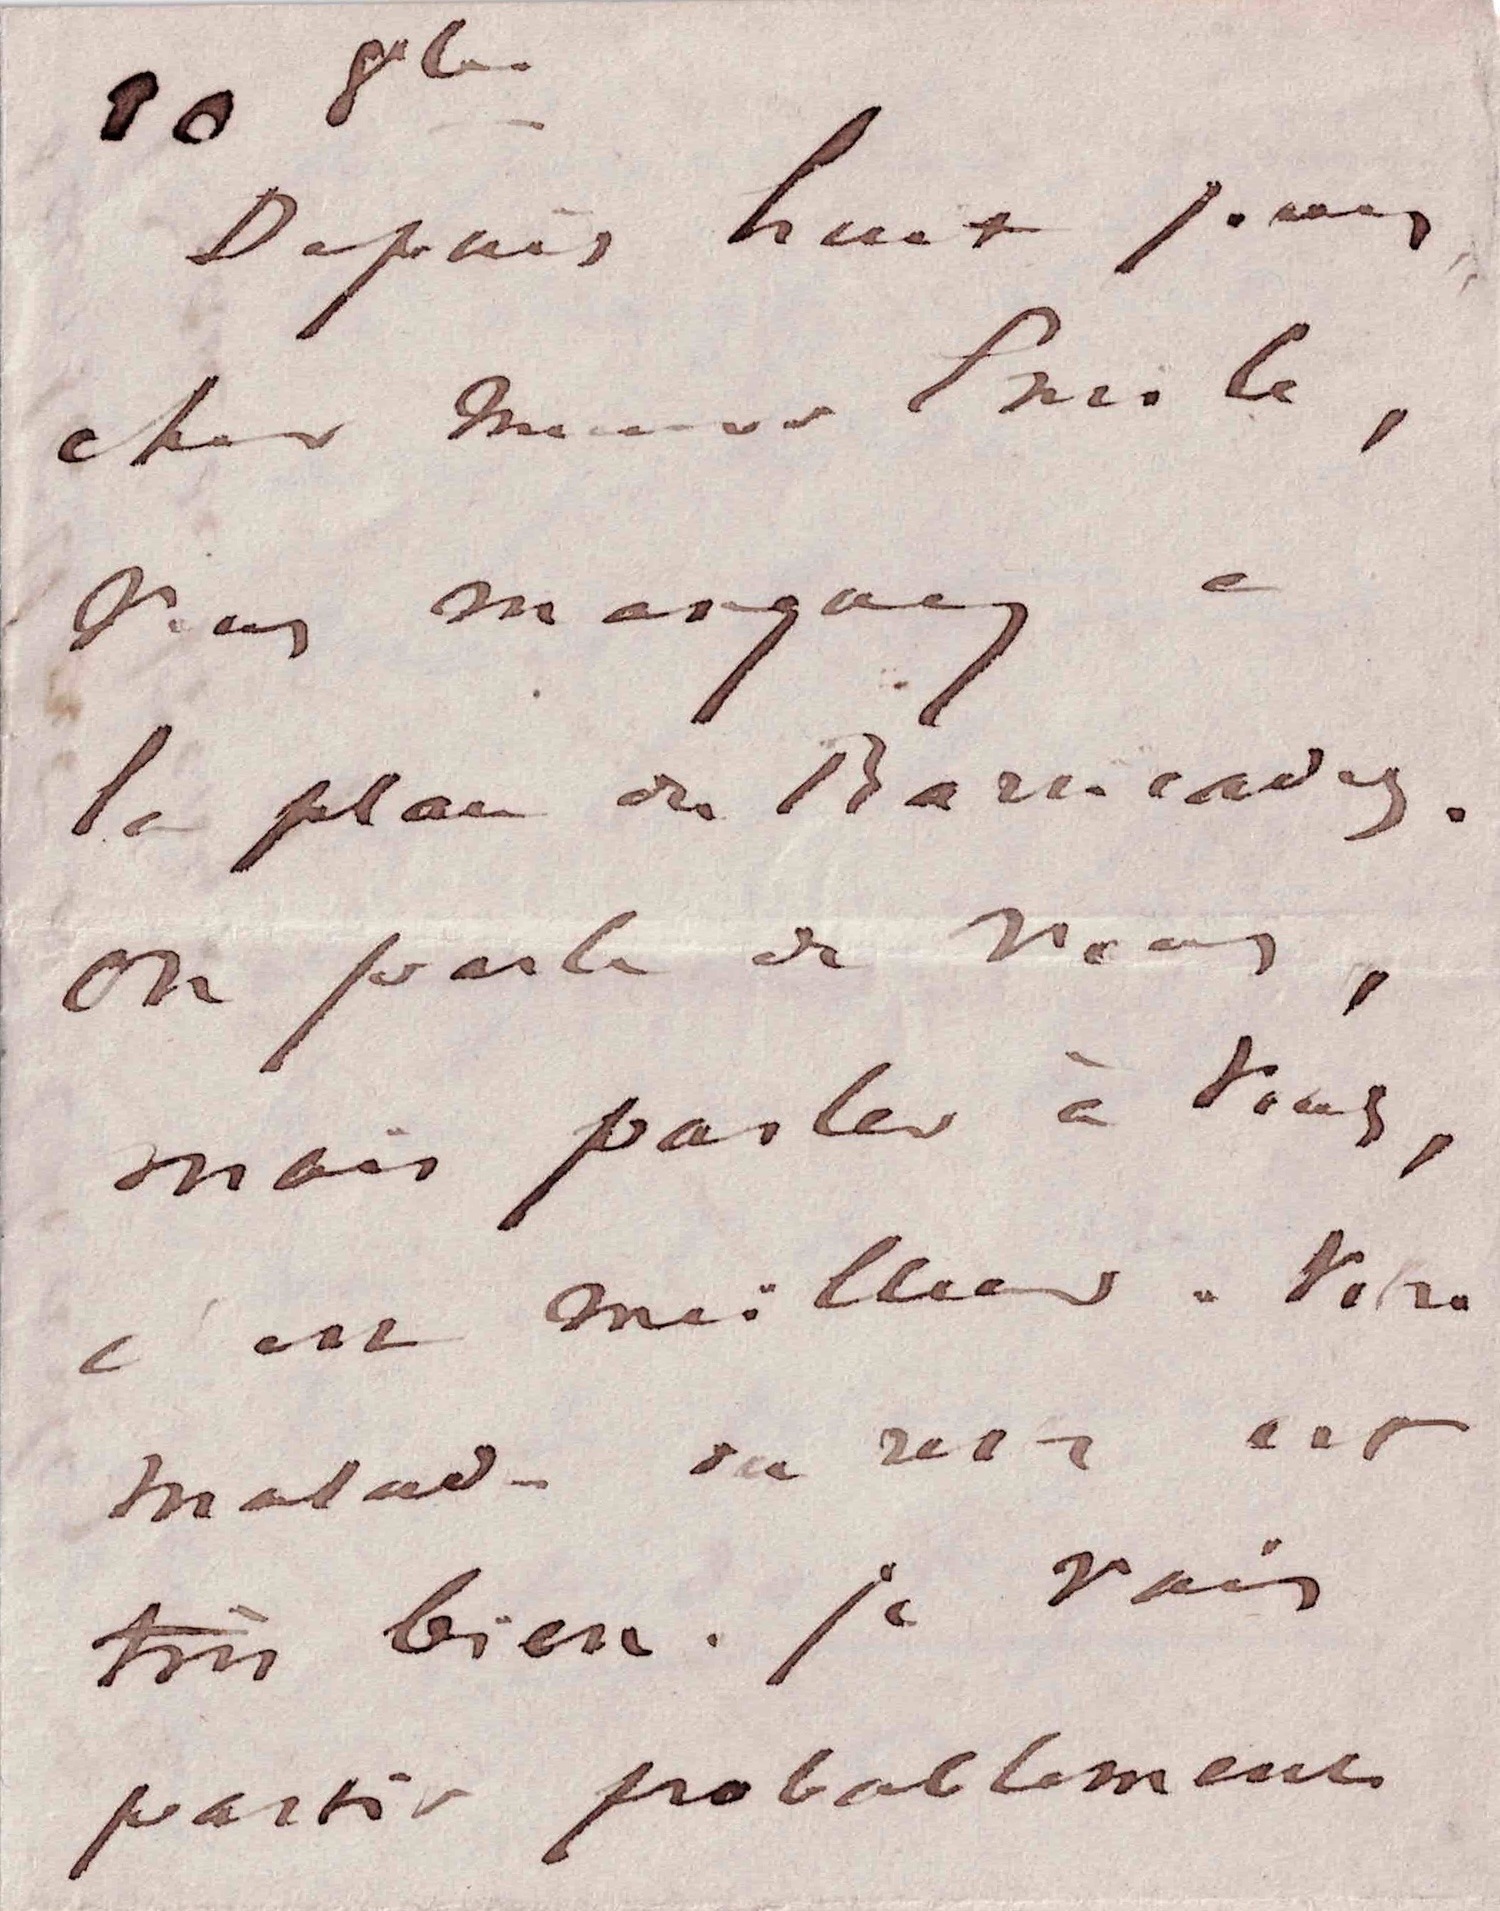 10 8bre
Depuis huit jours,
cher Monsieur Émile,
vous manquez à
la place des Barricades.
on parle de vous,
mais parler à vous,
c'est meilleur. Votre
malade du reste est
très bien. je vais
partir probablement